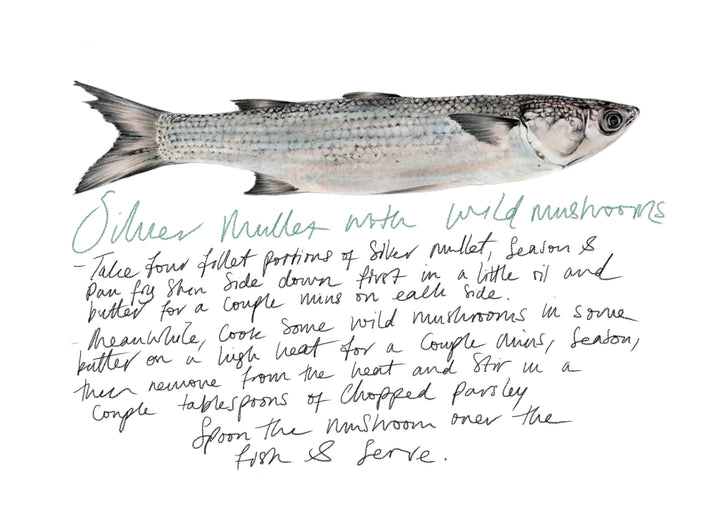 Silver Mullet with wild mushrooms
- Take four fillet portions of Silver mullet, Season &
pan fry skin side down first in a little oil and
butter for a couple mins on each side.
Meanwhile, cook some wild mushrooms in some
butter on a high heat for a couple mins, season,
then remove from the heat and stir in a
couple tablespoons of chopped parsley
Spoon the mushroom over the
fish & serve.